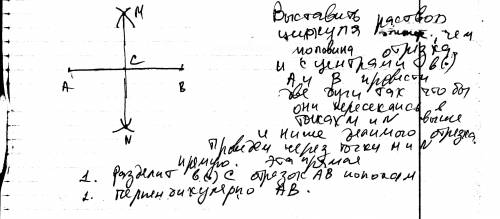 M
C
A
B
N
Выставить раствор
циркуля чем
половина отрезка,
и с центрами в(.)
A и B провести
две дуги так что бы
они пересекались в
точках M и N выше
и ниже данного отрезка.
Проведем через точки M и N
прямую. Эта прямая
1. Разделит в(.) C отрезок AB пополам
2. перпендикулярно AB.